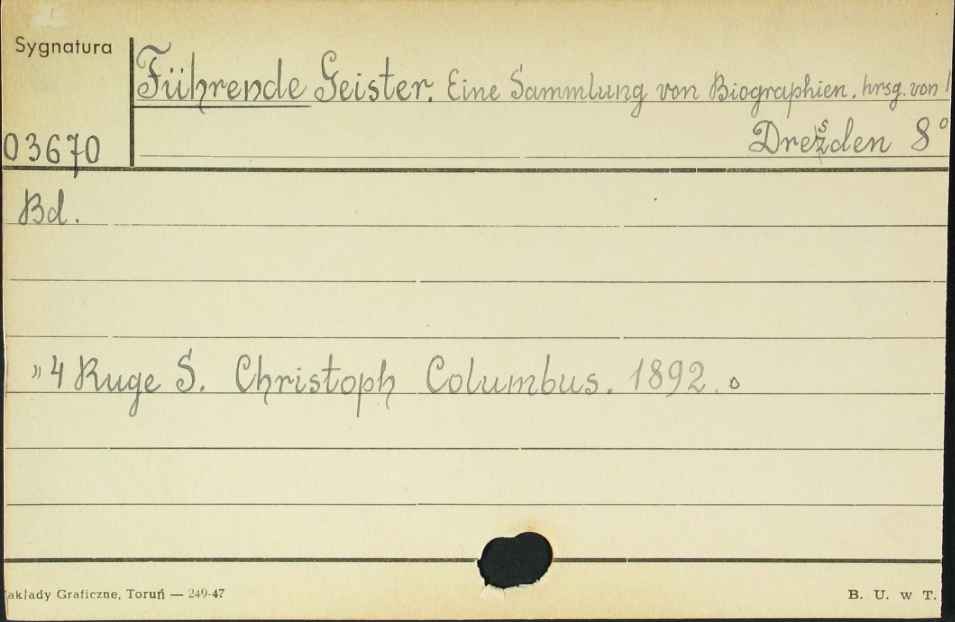 Sygnatura
Führende Geister. Eine Sammlung von Biographien. hrsg. von
03670
Dresden 8°
Bd.
" 4 Ruge S. Christoph Columbus. 1892.
akłady Graficzne, Toruń — 249-47
B. U. w T.